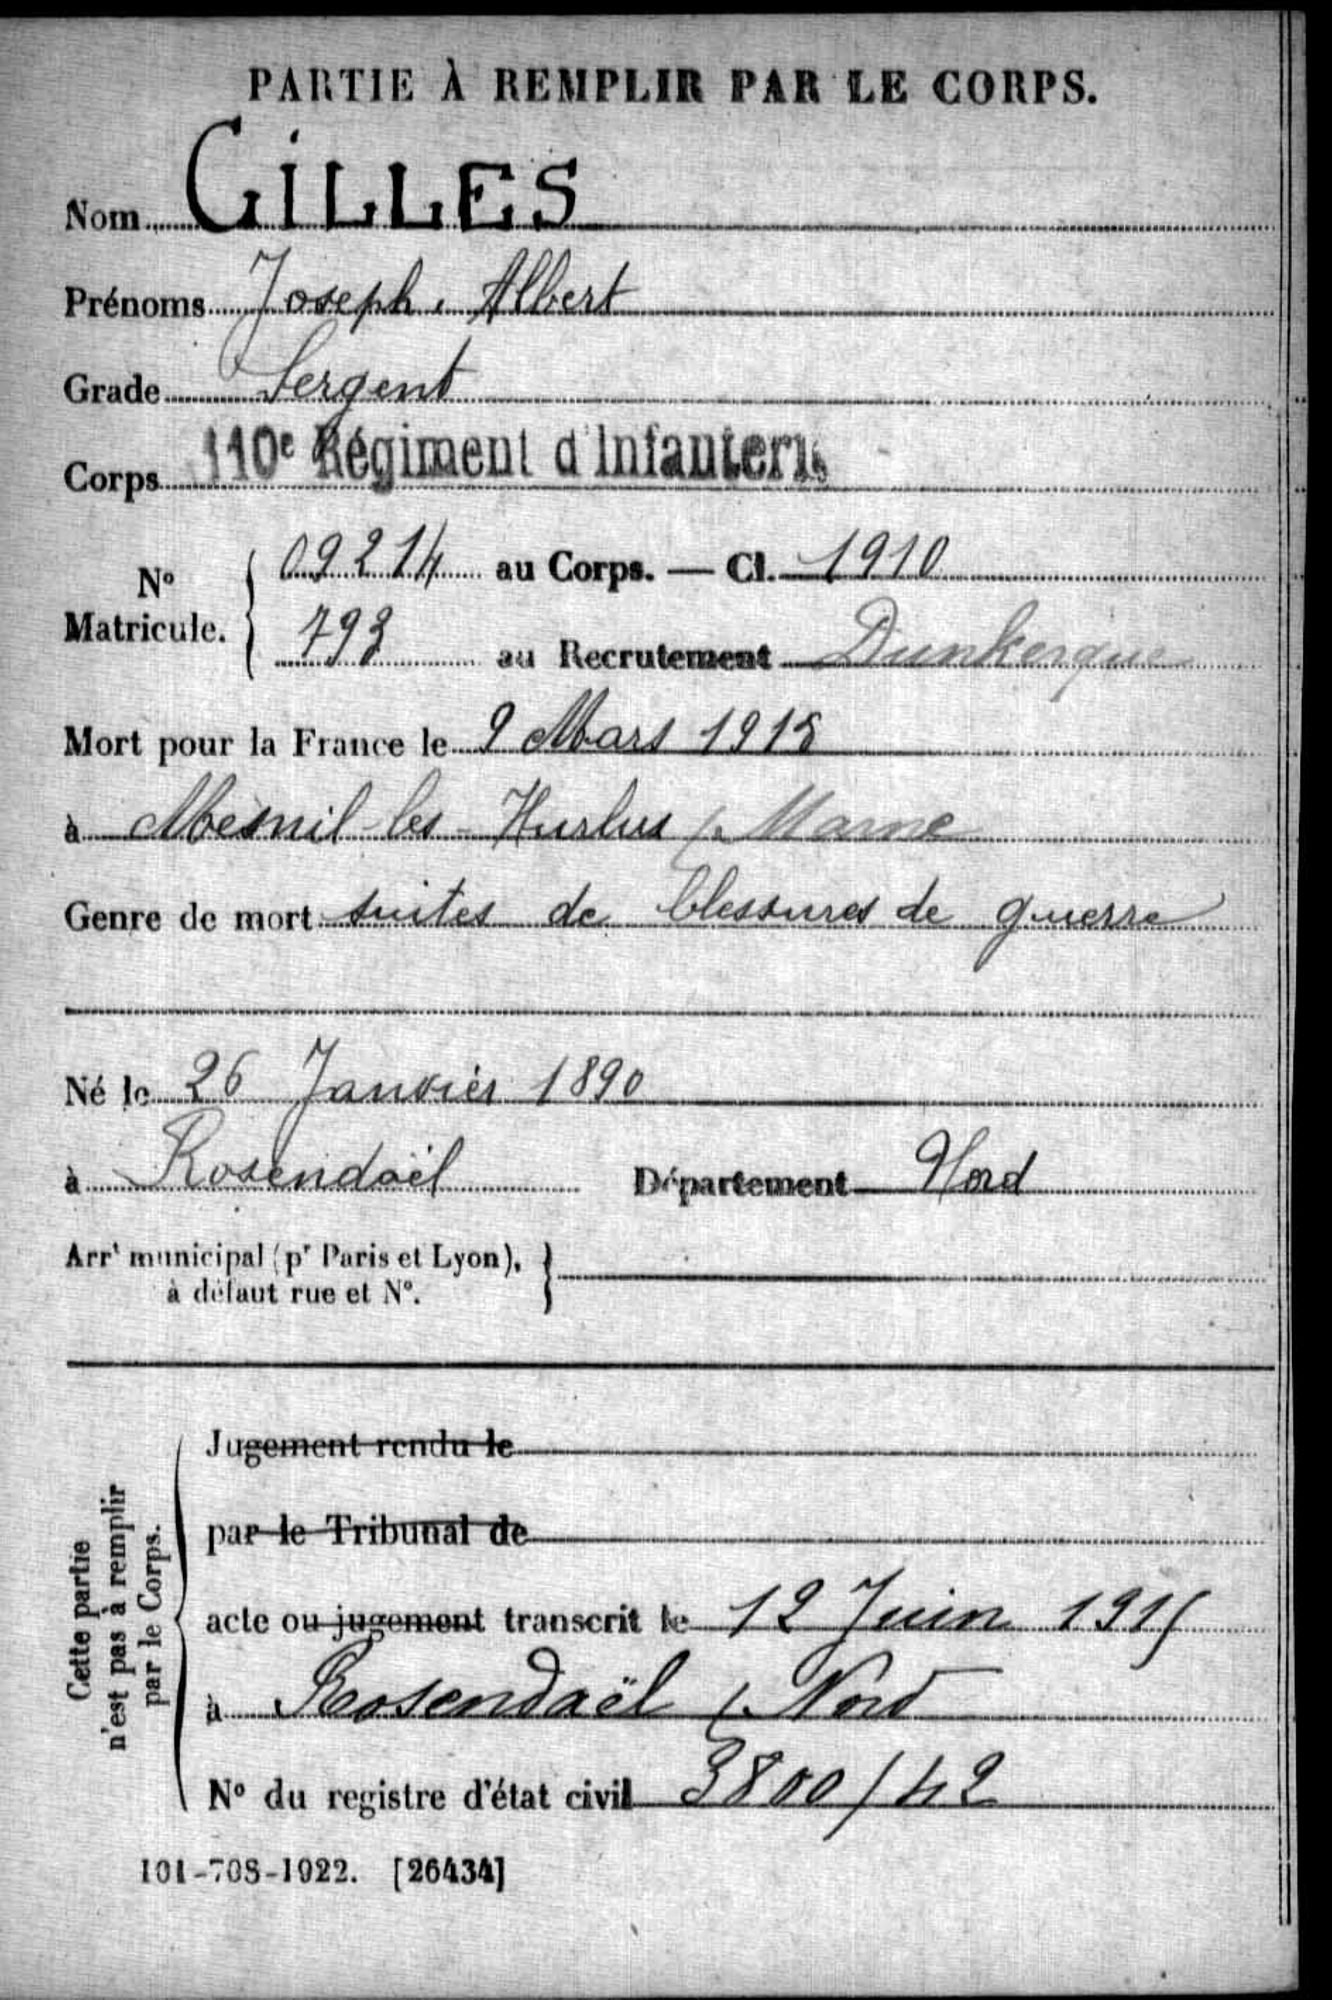 PARTIE À REMPLIR PAR LE CORPS.
Nom GILLES
Prénoms Joseph, Albert
Grade Sergent
Corps 110e Régiment d'Infanterie
No Matricule. { 09214 au Corps. — Cl. 1910
793 au Recrutement Dunkerque
Mort pour la France le 9 Mars 1915
à Mesnil-les-Hurlus (. Marne
Genre de mort suites de blessures de guerre
Né le 26 Janvier 1890
à Rosendaël Département Nord
Arrt municipal (pr Paris et Lyon), }
à défaut rue et No.
Cette partie
n'est pas à remplir
par le Corps.
Jugement rendu le
par le Tribunal de
acte ou jugement transcrit le 12 Juin 1915
à Rosendaël (. Nord
No du registre d'état civil 3800/42
101-708-1922. [26434]